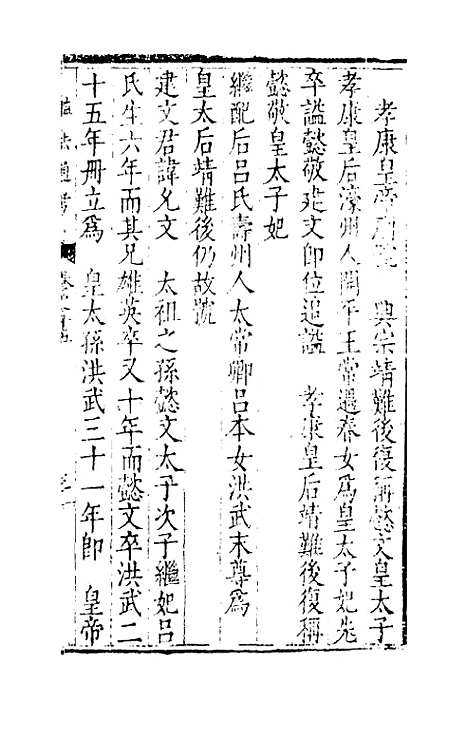 孝康皇帝廟號 興宗靖難後復稱懿文皇太子
孝康皇后濠州人開平王常遇春女爲皇太子妃先
卒謚懿敬建文卽位追謚 孝康皇后靖難後復稱
懿敬皇太子妃
繼配后呂氏壽州人太常卿呂本女洪武末尊爲
皇太后靖難後仍故號
建文君諱允文 太祖之孫懿文太子次子繼妃呂
氏生六年而其兄雄英卒又十年而懿文卒洪武二
十五年冊立爲 皇太孫洪武三十一年卽 皇帝
法通考